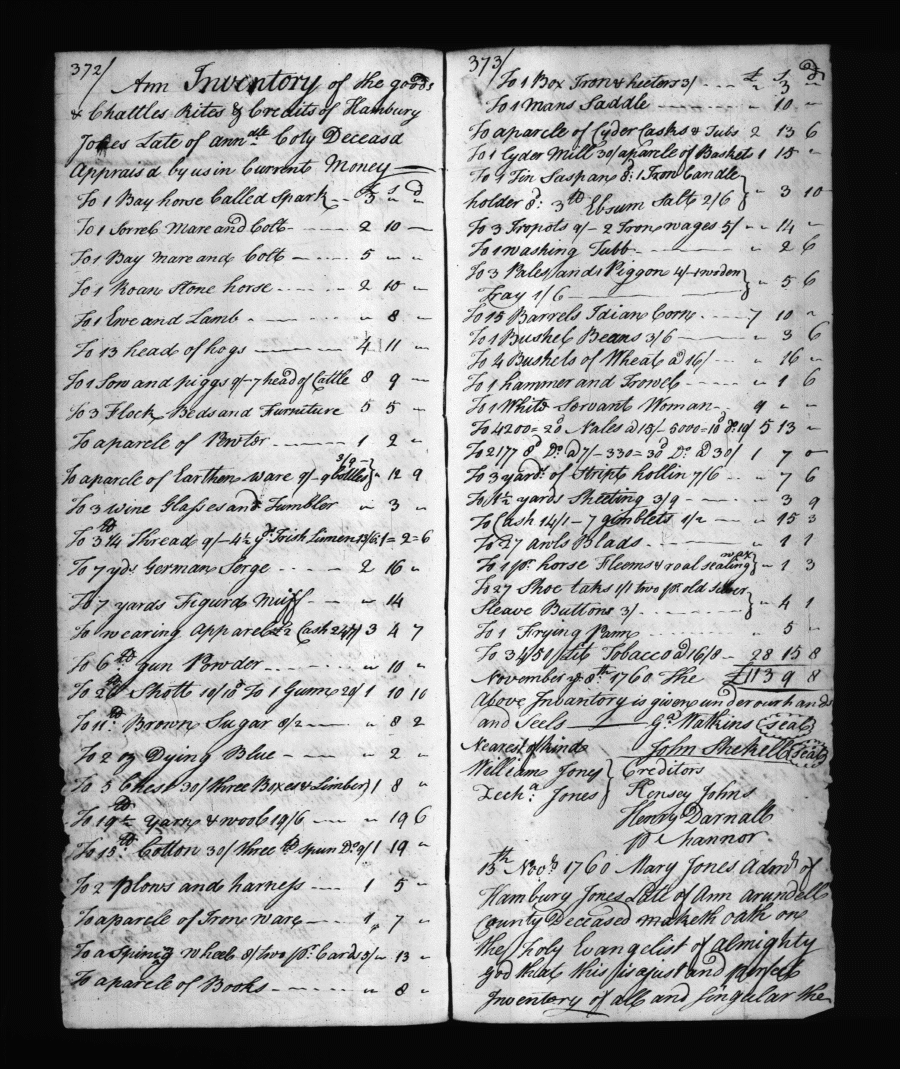 372/
Ann Inventory of the goods
& Chattles Rites & Credits of Hambury
Jones Late of ann dll Coty Deceasd
Appraisd by us in Current Money
£ s d
To 1 Bay horse Called Spark 3 " "
To 1 Sorrel Mare and Colt 2 10 "
To 1 Bay mare and Colt 5 " "
To 1 Roan Stone horse 2 10 "
To 1 Ewe and Lamb " 8 "
To 13 head of hogs 4 11 "
To 1 Sow and piggs 9/- 7 head of Cattle 8 9 "
To 3 Flock Beds and Furniture 5 5 "
To a parcle of Powter 1 2 "
To a parcle of Earthen ware 9/- 9 bottles 3/9 } " 12 9
To 3 wine Glasses and Tumbler " 3 "
To 3 lb 14 Thread 9/- 4½ yd Irish Linnen 13/6 1 = 2 = 6
To 7 yds German Serge 2 16 "
To 7 yards Figurd Muff " 14
To wearing Apparel Cash 3 4 7
To 6 lb gun Powder " 10 "
To Shott 10/10 To 1 Gunn 20/ 1 10 10
To 11 lb Brown Sugar 8/2 " 8 2
To 2 oz Dying Blue " 2 "
To 5 Chest 30/ three Boxes & Limber 1 8 "
To 19½ lb Yarn & wool 19/6 " 19 6
To 15 lb Cotton 30/ three lb spun Do 9/ 1 19 "
To 2 plows and harness 1 5 "
To a parcle of Iron ware 1 7 "
To a Spinig wheel 8/ two pr Cards 5/ " 13 "
To a parcle of Books " 8 "
373/
£ S d
To 1 Box Iron & heeters 3/ " 3 "
To 1 Mans Saddle " 10 "
To a parcle of Cyder Casks & Tubs 2 13 6
To 1 Cyder Mill 30/ a parcle of Basket 1 15 "
To 1 Tin Saspan 8d: 1 Iron Candle
holder 8d: 3 lb Ebsum Salts 2/6 } " 3 10
To 3 Tropots 9/- 2 Iron wages 5/ " 14 "
To 1 washing Tubb " 2 6
To 3 Pales and 1 Piggon 4/- 1 woden
Tray 1/6 } " 5 6
To 15 Barrels Idian Corn 7 10 "
To 1 Bushel Beans 3/6 " 3 6
To 4 Bushels of Wheat a 16/ " 16 "
To 1 hammer and Trowel " 1 6
To 1 White Servant Woman 9 " "
To 4200 = 20d Nales a 13/- 6000 = 10d Do 19/ 5 13 "
To 2177 8d Do a 7/- 330 = 30d Do a 30/ 1 7 0
To 3 yards of Stript hollin 7/6 " 7 6
To 1½ yards Sheeting 3/9 " 3 9
To Cash 14/1 - 7 gimblets 1/2 " 15 3
To 27 awls Blads " 1 1
To 1 pr horse Fleems & roal sealing wax } " 1 3
To 27 Shoe taks 1/1 two pr old silver
Sleave Buttons 3/ } " 4 1
To 1 Frying Pann " 5 "
To 3451 lbt Tobacco a 16/8 28 15 8
November ye 8th 1760 The £113 9 8
Above Inventory is given under our hands
and Seels Gs Watkins (seal)
John Shekell (seal)
Nearest of kind
William Jones
Zecha: Jones
Creditors
Kensey Johns
Henry Darnall
P Channor
15th Novr 1760 Mary Jones Admx of
Hambury Jones Late of Ann arundell
County Deceased maketh oath on
the holy Evangelist of almighty
god that this is a just and perfect
Inventory of all and Singular the